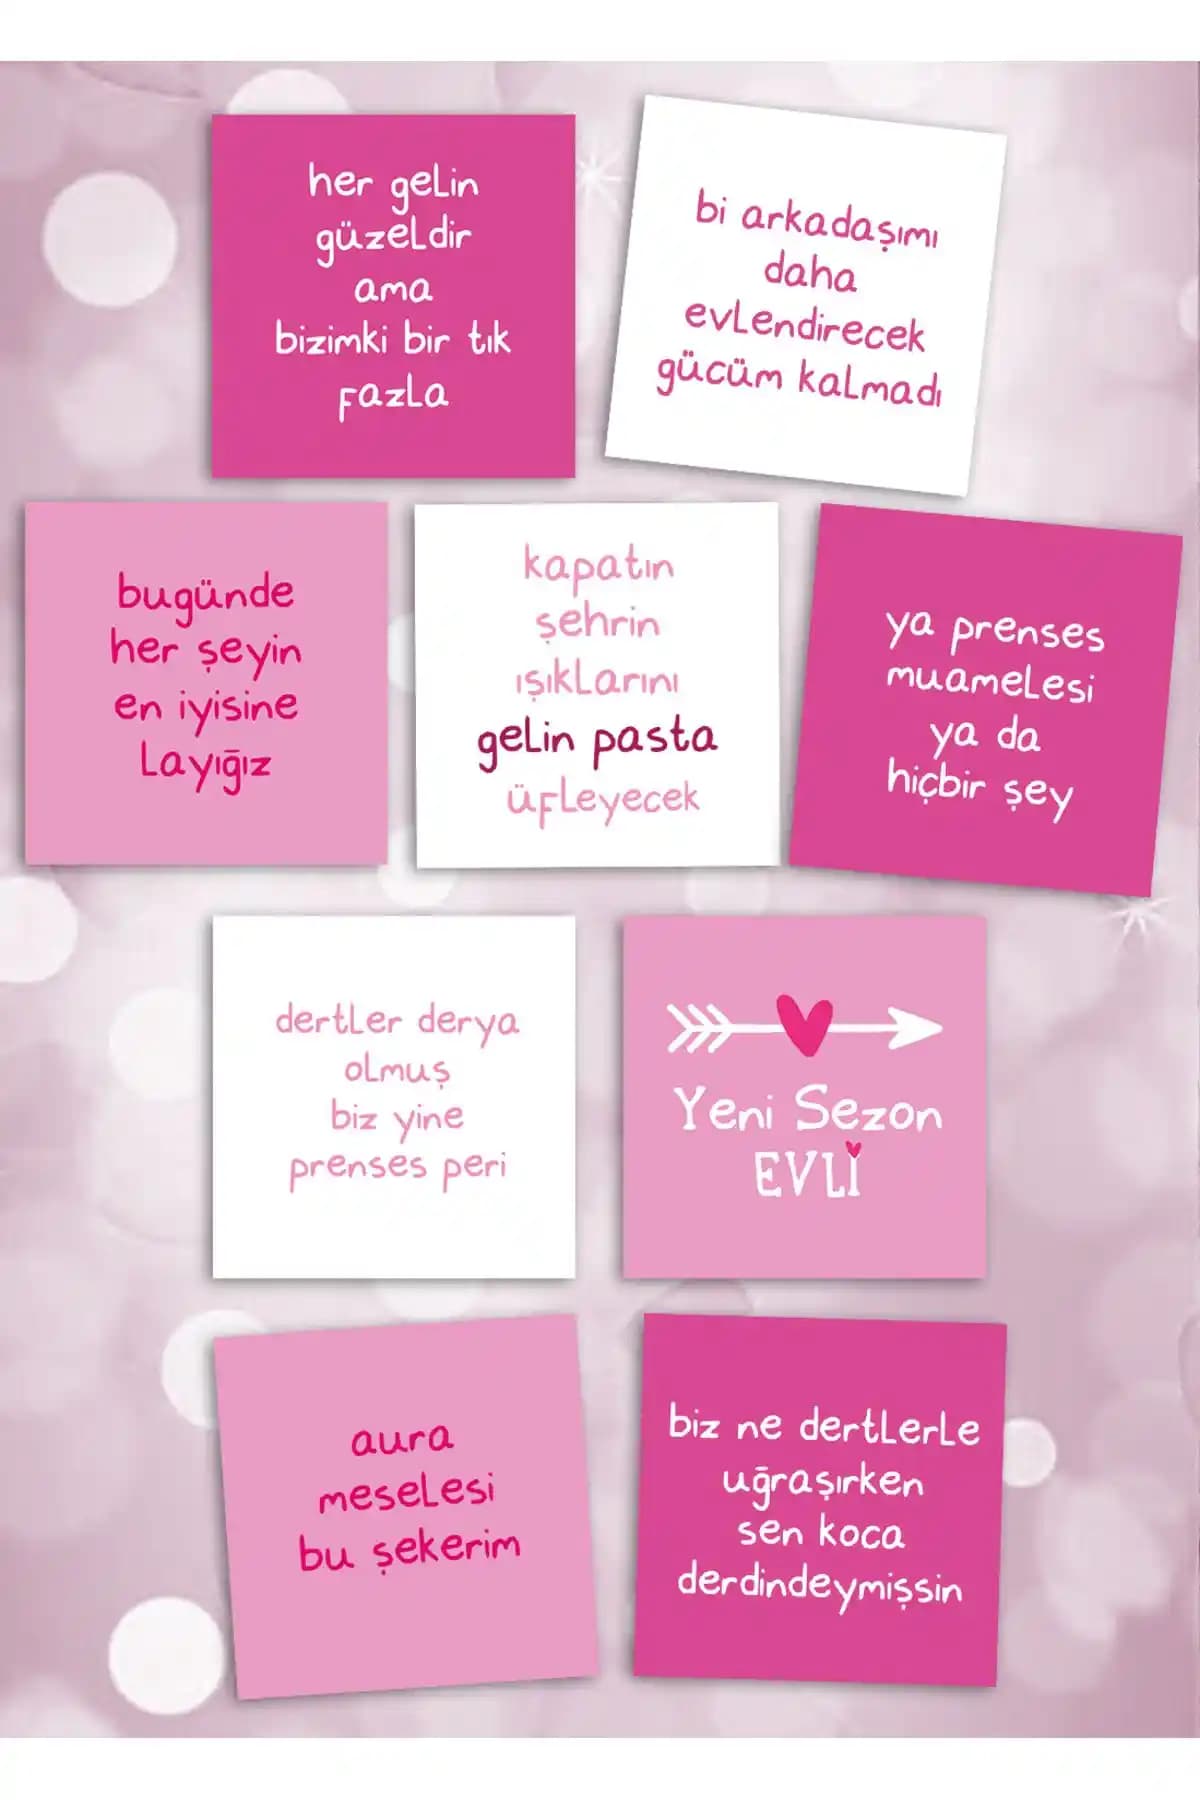 her gelin
güzeldir
ama
bizimki bir tık
fazla
bi arkadaşımı
daha
evlendirecek
gücüm kalmadı
bugünde
her şeyin
en iyisine
layığız
kapatın
şehrin
ışıklarını
gelin pasta
üfleyecek
ya prenses
muamelesi
ya da
hiçbir şey
dertler derya
olmuş
biz yine
prenses peri
Yeni Sezon
EVLİ
aura
meselesi
bu şekerim
biz ne dertlerle
uğraşırken
sen koca
derdindeymişsin